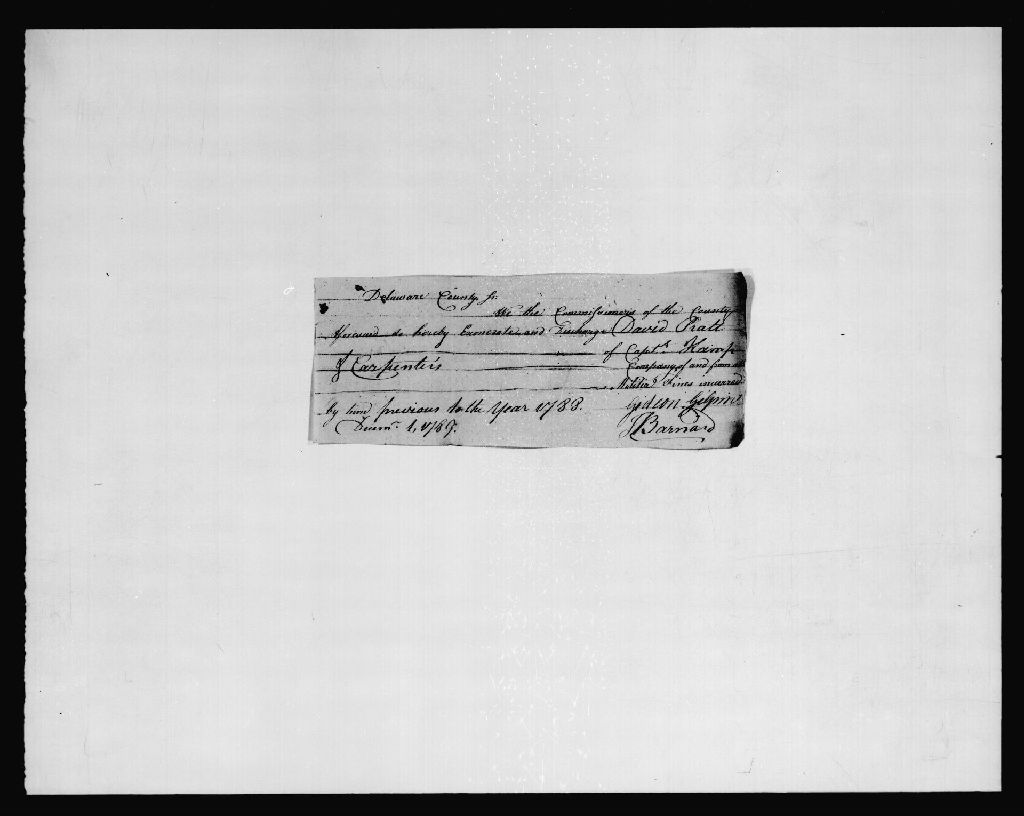 Delaware County ss.
We the Commissioners of the County
afforesaid do hereby Exonerate and Discharge David Pratt
of Capt.
J Carpenters Company, of and from all
Militia Fines incurred
by him previous to the Year 1788.
Decem. 1, 1789. Gideon Gilpin
J Barnard